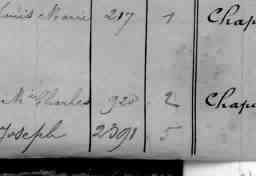 Louis Marie 217 1 Chap
Mie Charles 920 2 Chap
Joseph 2391 5